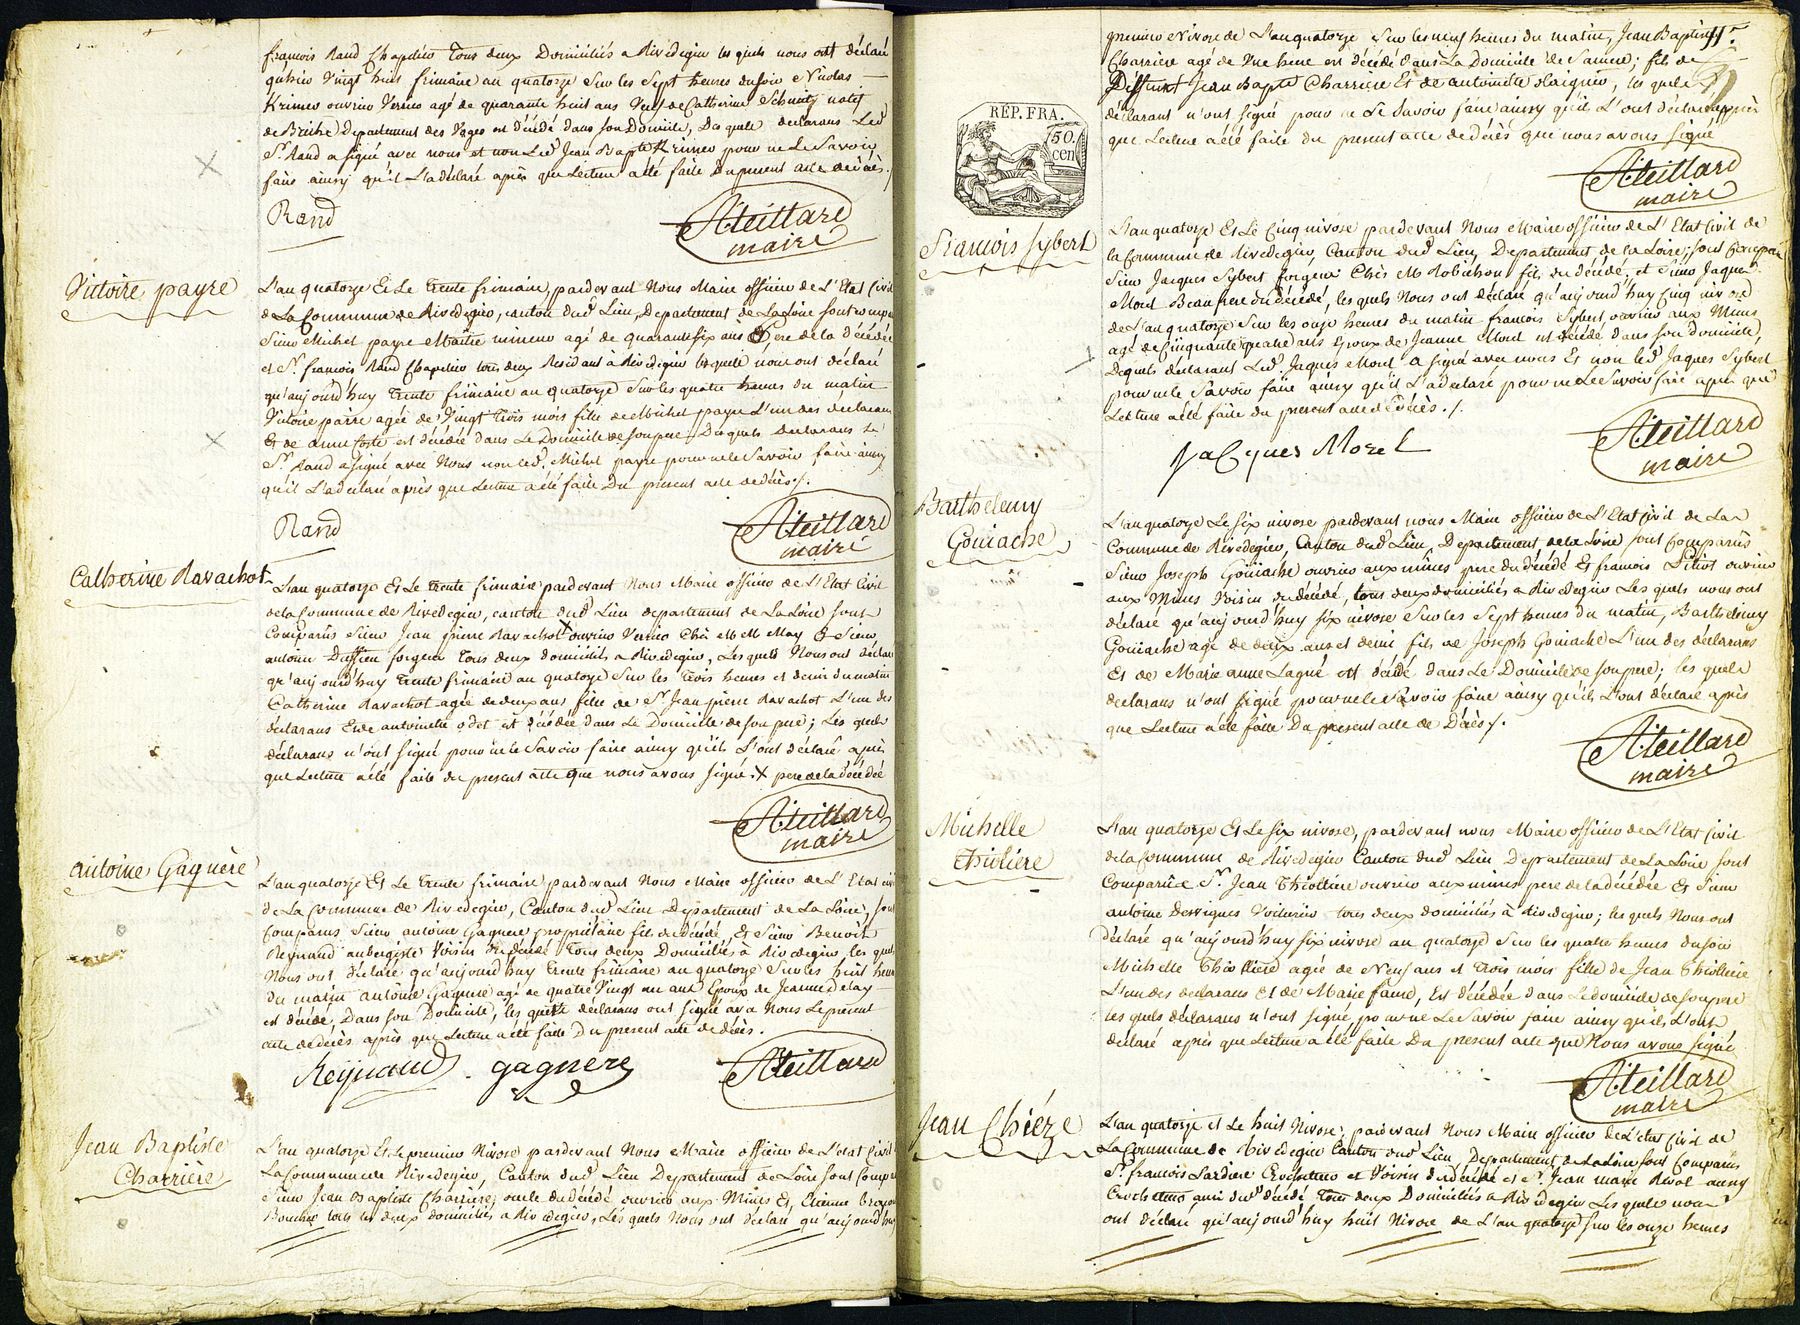 françois Rand Chapelier tous deux Domiciliés a Rivedegier les quels nous ont déclaré
qu'hier vingt huit frimaire an quatorze Sur les Sept heures du soir Nicolas
Krimer ouvrier Verrier agé de quarante huit ans Veuf de Catherine natif
de Departement des Vosges est décédé dans son Domicile, Des quels declarans Led.
Sr. Rand a signé avec nous et non Led. Jean Bapte Krimer pour ne Le Savoir
faire ainsy qu'il L'a déclaré après que Lecture a été faite du present acte de décès ./.
Rand
A. teillard
maire
Victoire payre
L'an quatorze Et Le trente frimaire, pardevant Nous Maire officier de L'Etat Civil
de La Commune de Rivedegier, canton dud. Lieu, Departement de La Loire sont
Sieur Michel payre Maitre mineur agé de quarante six ans Pere de la décédée
et Sr. françois Rand Chapelier tous deux Residant à Rivedegier lesquels nous ont déclaré
qu'aujourd'huy trente frimaire an quatorze Sur les quatre heures du matin
Victoire payre agée de Vingt trois mois fille de Michel payre L'un des declarans
Et de anne est décédée dans Le Domicile de son pere. Desquels Declarans Le
Sr. Rand a signé avec Nous non led. Michel payre pour ne le Savoir faire ainsy
qu'il L'a declaré après que Lecture a été faite Du present acte de décès ./.
Rand
A. teillard
maire
Catherine Ravachot
L'an quatorze Et Le trente frimaire pardevant Nous Maire officier de L'Etat Civil
de la Commune de Rivedegier, canton dud. Lieu departement de La Loire sont
Comparus Sieur Jean pierre Ravachot X ouvrier Verrier Chés M M May & Sieur
antoine Duffieu forgeur tous deux domiciliés a Rivedegier, Lesquels Nous ont déclaré
qu'aujourd'huy trente frimaire an quatorze Sur les trois heures et demi du matin
Catherine Ravachot agée de deux ans fille de Sr. Jean pierre Ravachot L'un des
declarans Et de antoinette odet est décédée dans Le Domicile de son pere ; Les quels
declarans n'ont signé pour ne le Savoir faire ainsy qu'ils L'ont déclaré après
que Lecture a été faite du present acte que nous avons signé. X pere de la décédée
A. teillard
maire
antoine Gagnère
L'an quatorze Et Le trente frimaire pardevant Nous Maire officier de L'Etat civil
de La Commune de Rivedegier, Canton dud. Lieu Departement de La Loire, sont
Comparus Sieur antoine Gagnere propriétaire fils du décédé, Et Sieur Benoit
Reynaud aubergiste Voisin du décédé tous deux Domiciliés à Rivedegier les quels
Nous ont déclaré qu'aujourd'huy trente frimaire an quatorze Sur les huit heures
du matin antoine Gagnere agé de quatre Vingt un ans Epoux de Jeanne Delay
est décédé, Dans son Domicile, les quels déclarans ont signé avec Nous Le present
acte de decès après que Lecture a été faite Du present acte de décès.
Reynaud gagnere
A. teillard
Jean Baptiste
Charrière
L'an quatorze Et Le premier Nivose pardevant Nous Maire officier de L'etat Civil
La Commune de Rivedegier, Canton dud. Lieu Departement de Loire sont
Sieur Jean Baptiste Charriere, oncle du décédé ouvrier aux Mines Et, Etienne
Boucher tous les deux domiciliés a Rivedegier, Les quels Nous ont déclaré qu'aujourd'huy
11
premier Nivose de L'an quatorze Sur les neuf heures du matin, Jean Baptiste
Charriere agé de Une heure est décédé dans La Domicile de Sa mere ; fils de
Deffunt Jean Bapte Charriere Et de antoinette les quels
declarant n'ont signé pour ne Le Savoir faire ainsy qu'ils L'ont declaré après
que Lecture a été faite du present acte de décès que nous avons signé
A. teillard
maire
RÉP. FRA.
50.
cen
françois Sybert
L'an quatorze Et Le Cinq nivose pardevant Nous Maire officier de L'Etat Civil de
la Commune de Rivedegier, Canton dud. Lieu, Departement de la Loire, sont
Sieur Jacques Sybert forgeur Chés M Robichon fils du décédé, et Sieur Jaques
Morel Beaufrere du décédé, les quels Nous ont déclaré qu'aujourd'huy Cinq nivose
de L'an quatorze Sur les onze heures du matin françois Sybert, ouvrier aux Mines
agé de Cinquante quatre ans Epoux de Jeanne Morel est décédé dans Son Domicile,
Desquels declarant Led. Jaques Morel a signé avec nous Et non led. Jaques Sybert
pour ne le Savoir faire ainsy qu'il L'a declaré pour ne Le Savoir faire après que
Lecture a été faite du present acte de décès ./.
Jacques Morel
A. teillard
maire
Barthelemy
Gouiache
L'an quatorze Le six nivose pardevant nous Maire officier de L'Etat Civil de La
Commune de Rivedegier, Canton dud. Lieu, Departement de la Loire sont Comparus
Sieur Joseph Goüiache ouvrier aux mines pere du décédé Et françois Pitiot ouvrier
aux Mines Voisin du décédé, tous deux domiciliés a Rivedegier Les quels nous ont
déclaré qu'aujourd'huy six nivose Sur les Sept heures du matin, Barthelemy
Goüiache agé de deux ans et demi fils de Joseph Gouiache L'un des déclarans
Et de Marie anne Lagné est décédé dans Le Domicile de son pere ; les quels
declarans n'ont signé pour ne le Savoir faire ainsy qu'ils L'ont déclaré après
que Lecture a été faite Du present acte de Décès ./.
A. teillard
maire
Michelle
Thiolière
L'an quatorze Et Le six nivose, pardevant nous Maire officier de L'Etat Civil
de la Commune de Rivedegier Canton dud. Lieu Departement de La Loire sont
Comparus Sr. Jean Thiolliere ouvrier aux mines pere de la décédée Et Sieur
antoine Dervigues Voiturier tous deux domiciliés à Rivedegier ; les quels Nous ont
Déclaré qu'aujourd'huy six nivose an quatorze Sur les quatre heures du soir
Michelle Thiolliere agée de Neuf ans et trois mois fille de Jean Thiolliere
L'un des declarans Et de Marie faure, Est décédée dans Le domicile de son pere
les quels declarans n'ont signé pour ne Le Savoir faire ainsy qu'ils L'ont
déclaré après que Lecture a été faite Du present acte que Nous avons signé
A. teillard
maire
Jean Chièze
L'an quatorze et Le huit Nivose, pardevant Nous Maire officier de L'état Civil de
La Commune de Rivedegier Canton dud. Lieu, Departement de La Loire sont Comparus
Sr. françois Lardiere Crocheteur et Voisin du décédé et Sr. Jean marie Rival aussy
Crocheteur, ami du. décédé, tous deux Domiciliés a Rivedegier Les quels nous
ont déclaré qu'aujourd'huy huit Nivose de L'an quatorze sur les onze heures